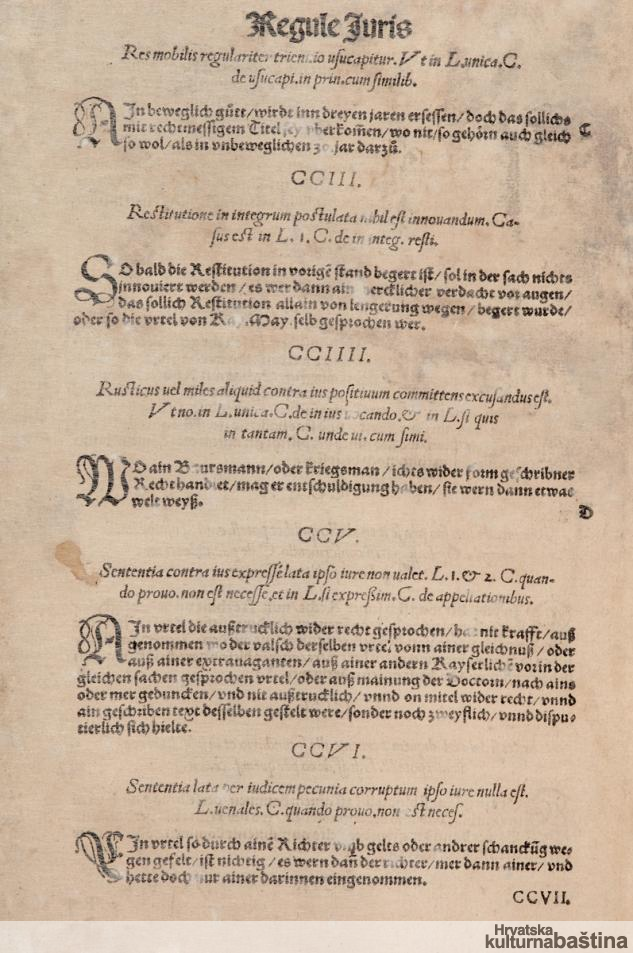 Regule Juris
Res mobilis regulariter triennio usucapitur. Vt in L.unica.C.
de usucapi.in prin.cum similib.
AIn beweglich gůtt/wirdt inn dreyen jaren ersessen/doch das sollichs
mit rechtmessigem Titel sey vberkom̃en/wo nit/so gehörn auch gleich
so wol/als in vnbeweglichen 30.jar darzů.
C
CCIII.
Restitutione in integrum postulata nihil est innouandum. Ca-
sus est in L. 1. C. de in integ. resti.
SO bald die Restitution in vorigẽ stand begert ist/sol in der sach nichts
innouiert werden/es wer dann ain mercklicher verdacht vor augen/
das sollich Restitution allain von lengerung wegen/begert wurde/
oder so die vrtel von Kay.May.selb gesprochen wer.
CCIIII.
Rusticus uel miles aliquid contra ius positiuum committens excusandus est.
Vt no. in L.unica.C.de in ius uocando.& in L.si quis
in tantam. C. unde ui. cum simi.
WO ain Baursmann/oder kriegsman/ichts wider form geschribner
Recht handlet/mag er entschuldigung haben/sie wern dann etwas
welt weyß.
D
CCV.
Sententia contra ius expressè lata ipso iure non ualet. L.1.& 2. C.quan-
do prouo.non est necesse.et in L.si expreßim.C. de appellationibus.
AIn vrtel die außtrucklich wider recht gesprochen/hat nit krafft/auß
genomen wo der valsch derselben vrtel vonn ainer gleichnuß/oder
auß ainer extrauaganten/auß ainer andern Kayserlichẽ vor in der
gleichen sachen gesprochen vrtel/oder auß mainung der Doctorn/nach ains
oder mer geduncken/vnd nit außtrucklich/vnnd on mitel wider recht/vnnd
ain geschriben text desselben gestelt were/sonder noch zweyflich/vnnd dispu-
tierlich sich hielte.
CCVI.
Sententia lata per iudicem pecunia corruptum ipso iure nulla est.
L.uenales. C.quando prouo.non est neces.
EIn vrtel so durch ainẽ Richter vmb gelts oder andrer schanckũg we-
gen gefelt/ist nichtig/es wern dañ der richter/mer dann ainer/vnd
hette doch nur ainer darinnen eingenommen.
CCVII.
Hrvatska
kulturnabaština